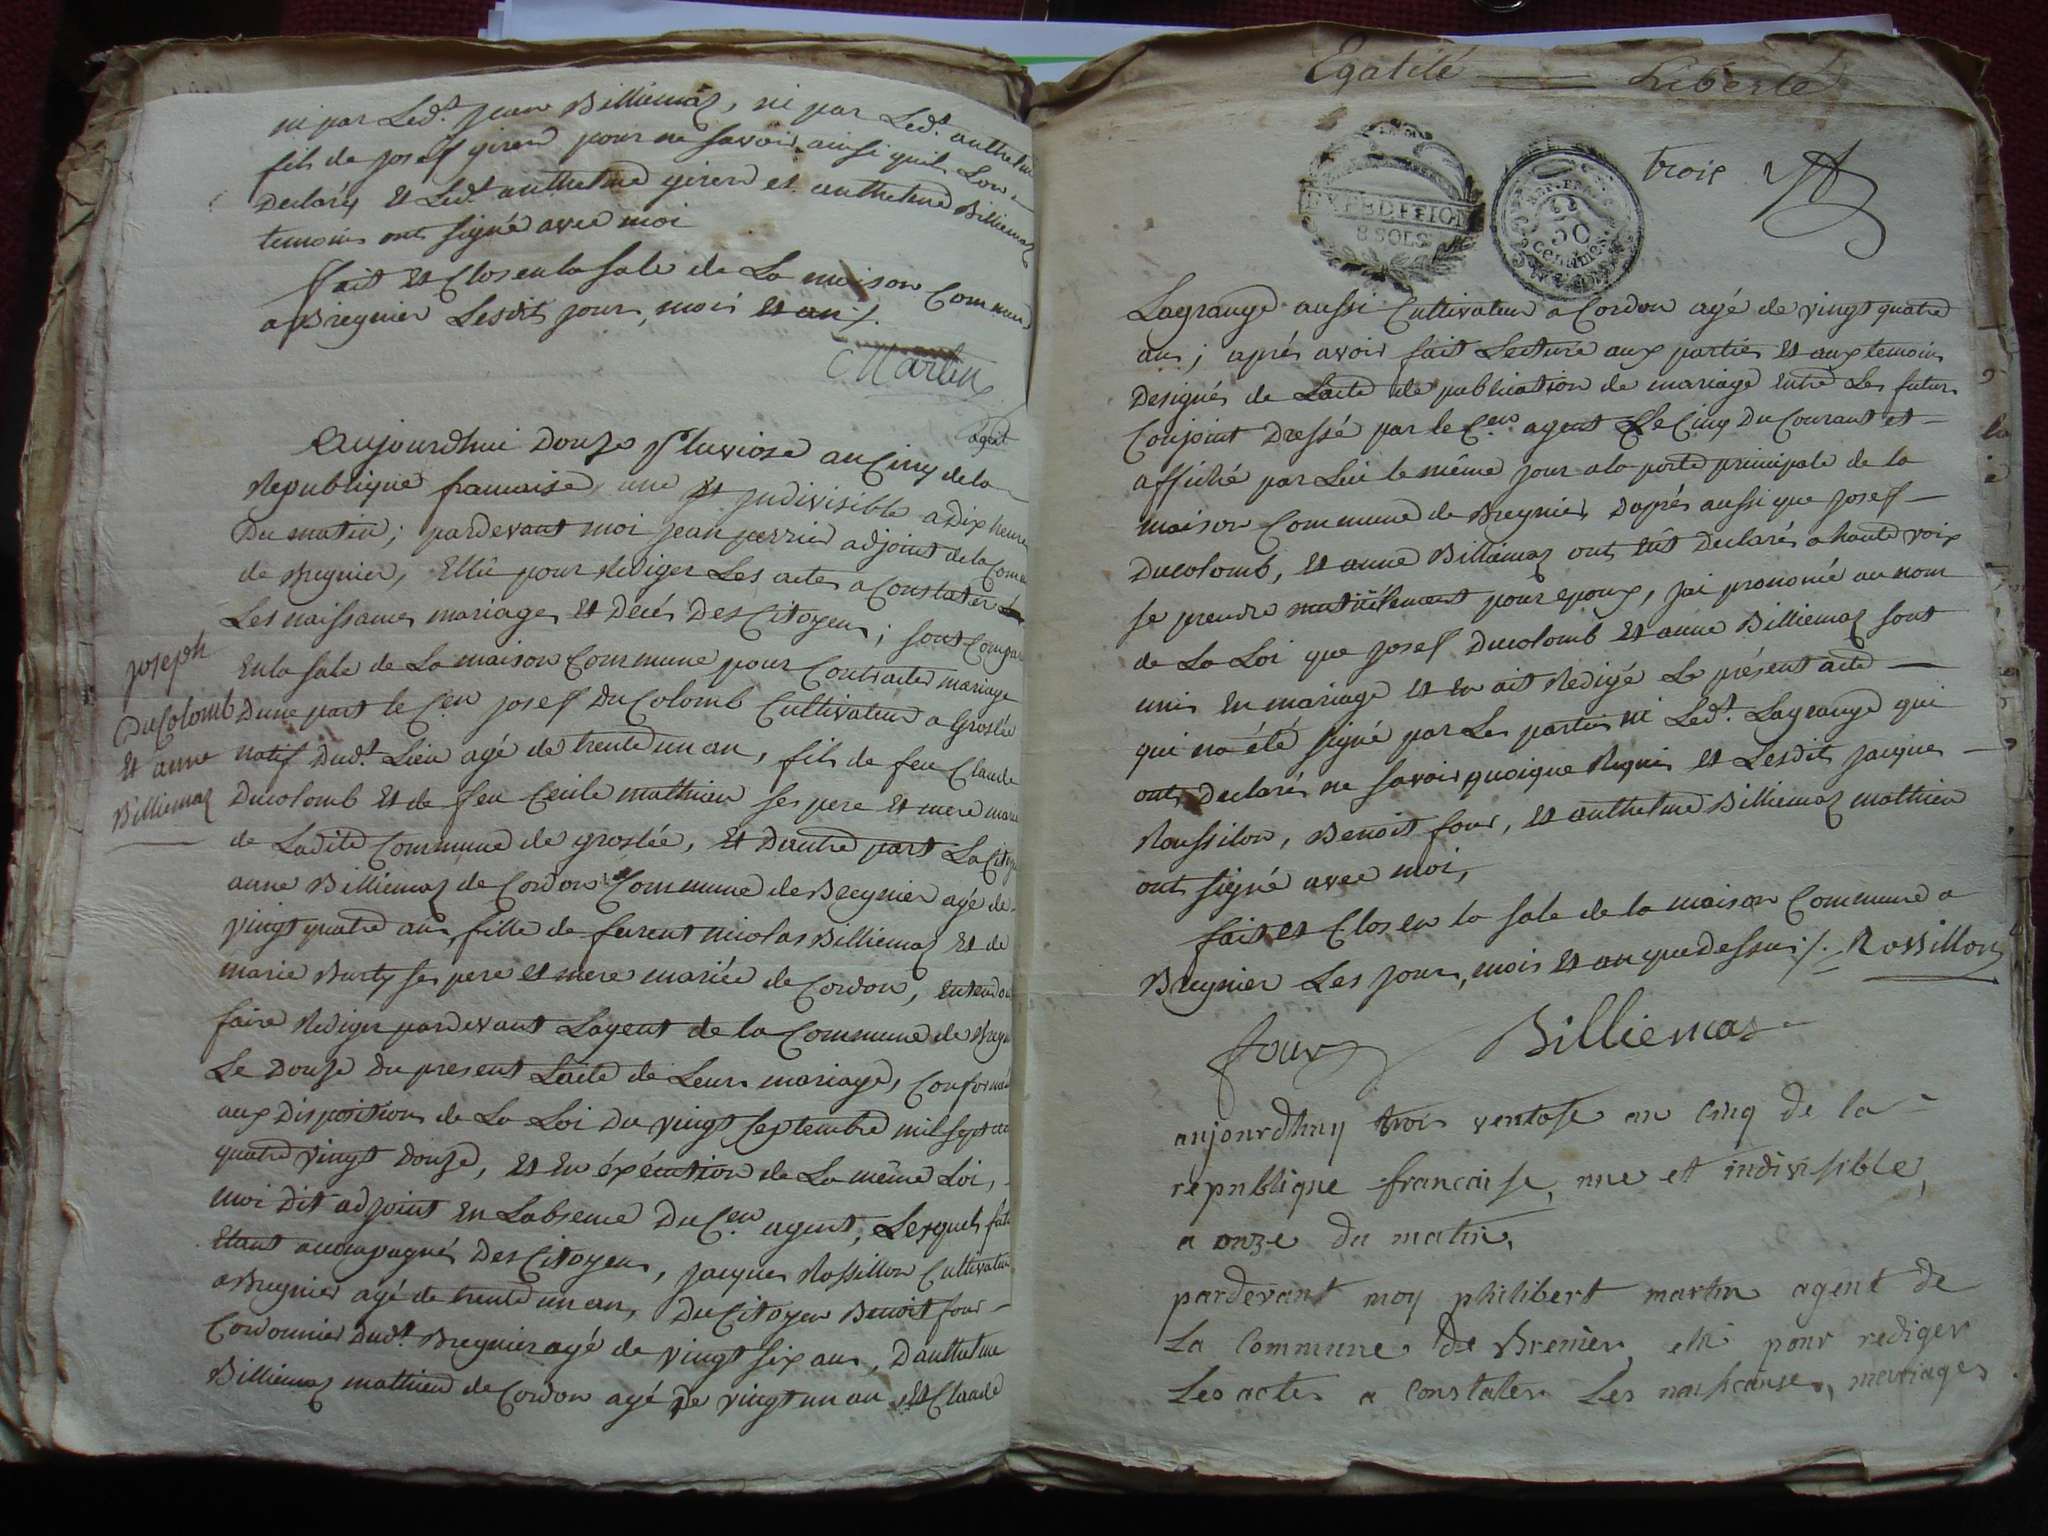 ni par Led.t Jean Billiemaz, ni par Led.t anthelme
fils de josef giren pour ne savoir ainsi quils Lon
Declarés Et Led.t anthelme giren et anthelme Billiemaz
temoins ont signé avec moi
fait et Clos en la sale de La maison Commune
a Bregnier Lesdit jour, mois Et an ./.
Martin
agent
Aujourdhui Douze Pluviose an Cinq de la
Republique francaise, une Et jndivisible a Dix heures
Du matin; pardevant moi jean perrier adjoint de la Comm
de Bregnier, Ellû pour Rediger Les actes a Constater
Les naissances mariages Et Decés Des Citoyens; sont Compar
En la sale de La maison Commune pour Contracter mariage
Joseph
DuColomb
Et anne
Billiemaz
Dune part le C.en josef DuColomb Cultivateur a Groslée
natif Dud.t Lieu agé de trente un an, fils de feu Claude
Ducolomb Et de feu Cecile mathieu ses pere Et mere marié
de Ladite Commune de groslée, Et Dautre part La Citoy
anne Billiemaz de Cordon Commune de Bregnier agé de
vingt quatre ans, fille de furent nicolas Billiemaz Et de
marie Burty ses pere et mere mariée de Cordon, entend
faire Rediger pardevant Lagent de la Commune de Bregn
Le Douze Du present Lacte de Leur mariage, Conformé
aux Disposition de La Loi Du vingt septembre mil sept cen
quatre vingt Douze, Et En éxécution de La même Loi,
moi dit adjoint En Labsence Du C.en agent, Lesquels futu
Etant accompagnés Des Citoyens, jacques Rossillon Cultivateur
a Bregnier agé de trente un ans, Du Citoyen Benoit four
Cordonnier Dud.t Bregnier agé de vingt six ans, Danthelme
Billiemaz mathieu de Cordon agé De vingt un an, Et Claude
Egalité Liberté
EXPEDITION
8 SOLS
REP. FRA.
50
Centimes
trois
Lagrange aussi Cultivateur a Cordon agé de vingt quatre
ans; aprés avoir fait Lecture aux parties Et aux temoins
Designés de Lacte de publication de mariage Entre Les futurs
Conjoint Dressé par le C.en agent Le Cinq Du Courant et
affiché par Lui le même jour a la porte principale de la
maison Commune de Bregnier, Daprés aussi que josef
Ducolomb, Et anne Billiemaz ont Eût Declarés a haute voix
se prendre mutuëlement pour epoux, jai prononcé au nom
de La Loi que josef Ducolomb Et anne Billiemaz sont
unis En mariage et en ait Redigé Le présent acte
qui na été signé par Les parties ni Led.t Lagrange qui
ont Declarés ne savoir quoique Requis et Lesdit jacques
Roussilon, Benoit four, Et anthelme Billiemaz mathieu
ont signé avec moi,
fait et Clos en la sale de la maison Commune a
Bregnier Les jour, mois Et an que dessus ./. Rossillon
four Billiemaz
aujourdhuy trois ventose an cinq de la
republique francaise, une et indivisible,
a onze du matin,
pardevant moy philibert martin agent de
La Commune de Brenier, elu pour rediger
Les actes a constater Les naissances, mariages